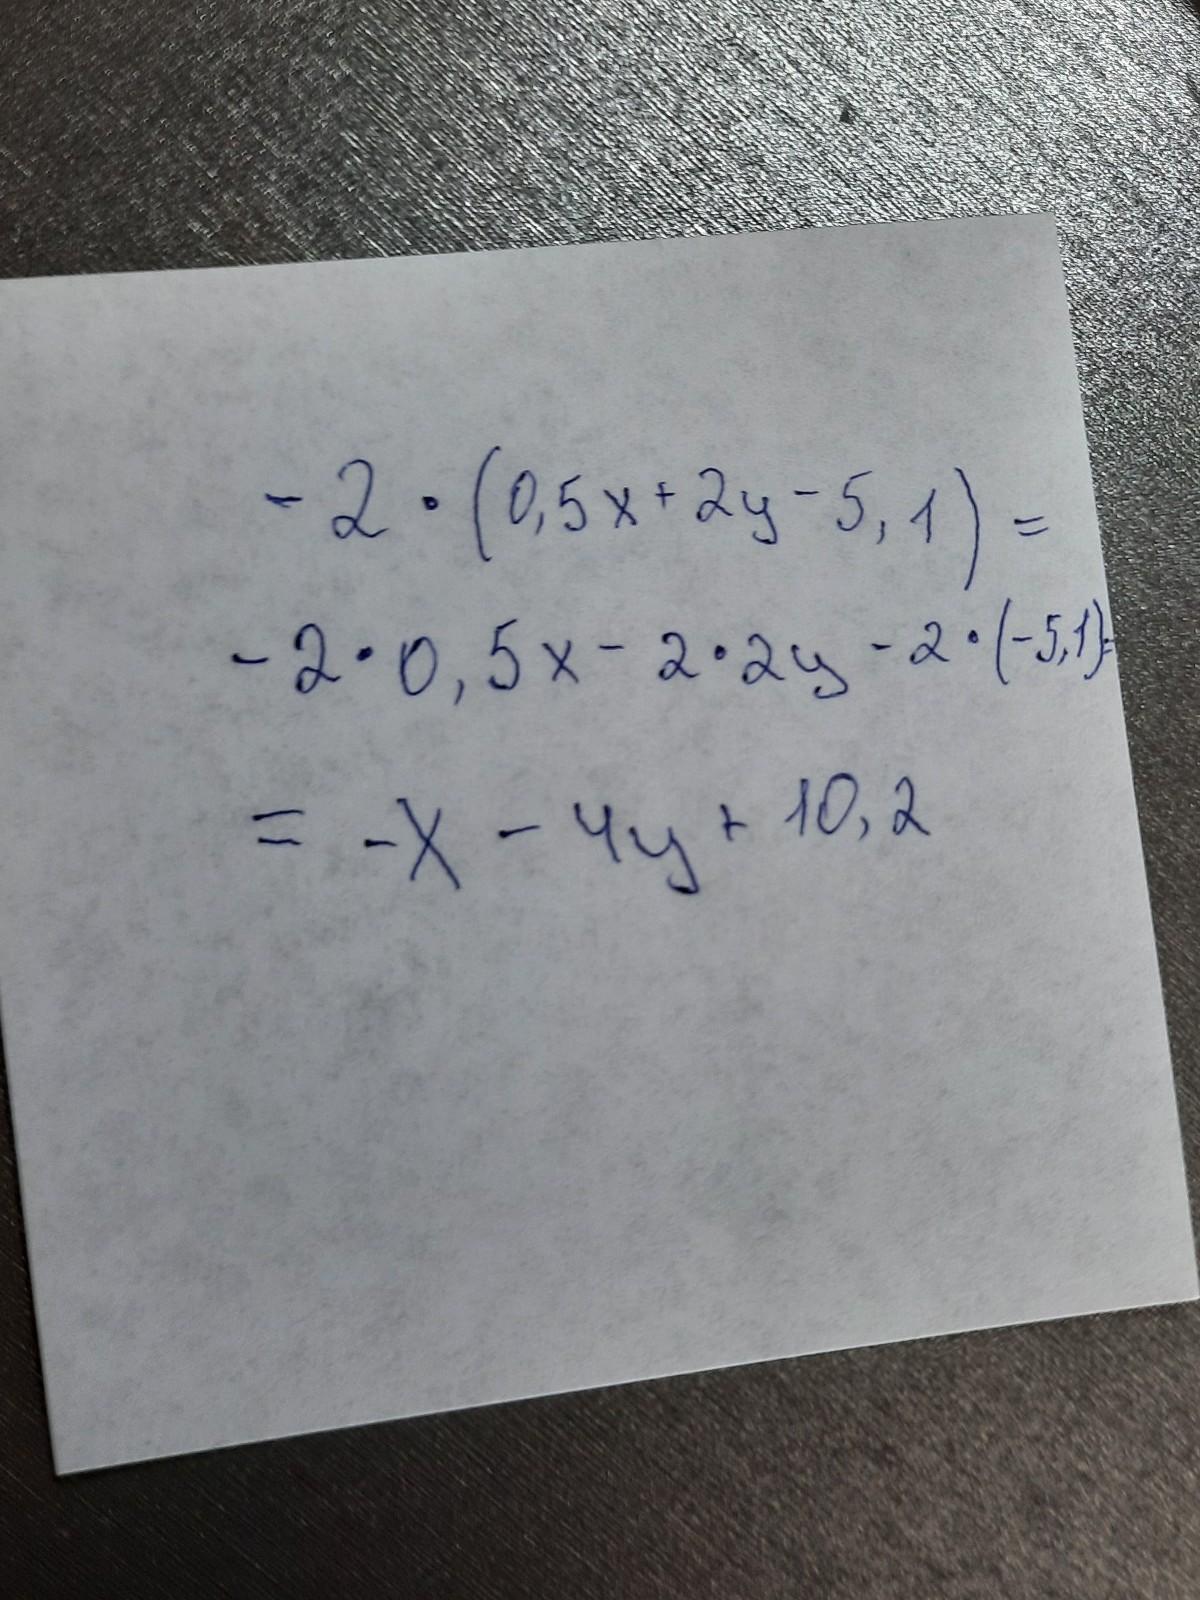 -2·(0,5x+2y-5,1)=
-2·0,5x-2·2y-2·(-5,1)=
=-x-4y+10,2